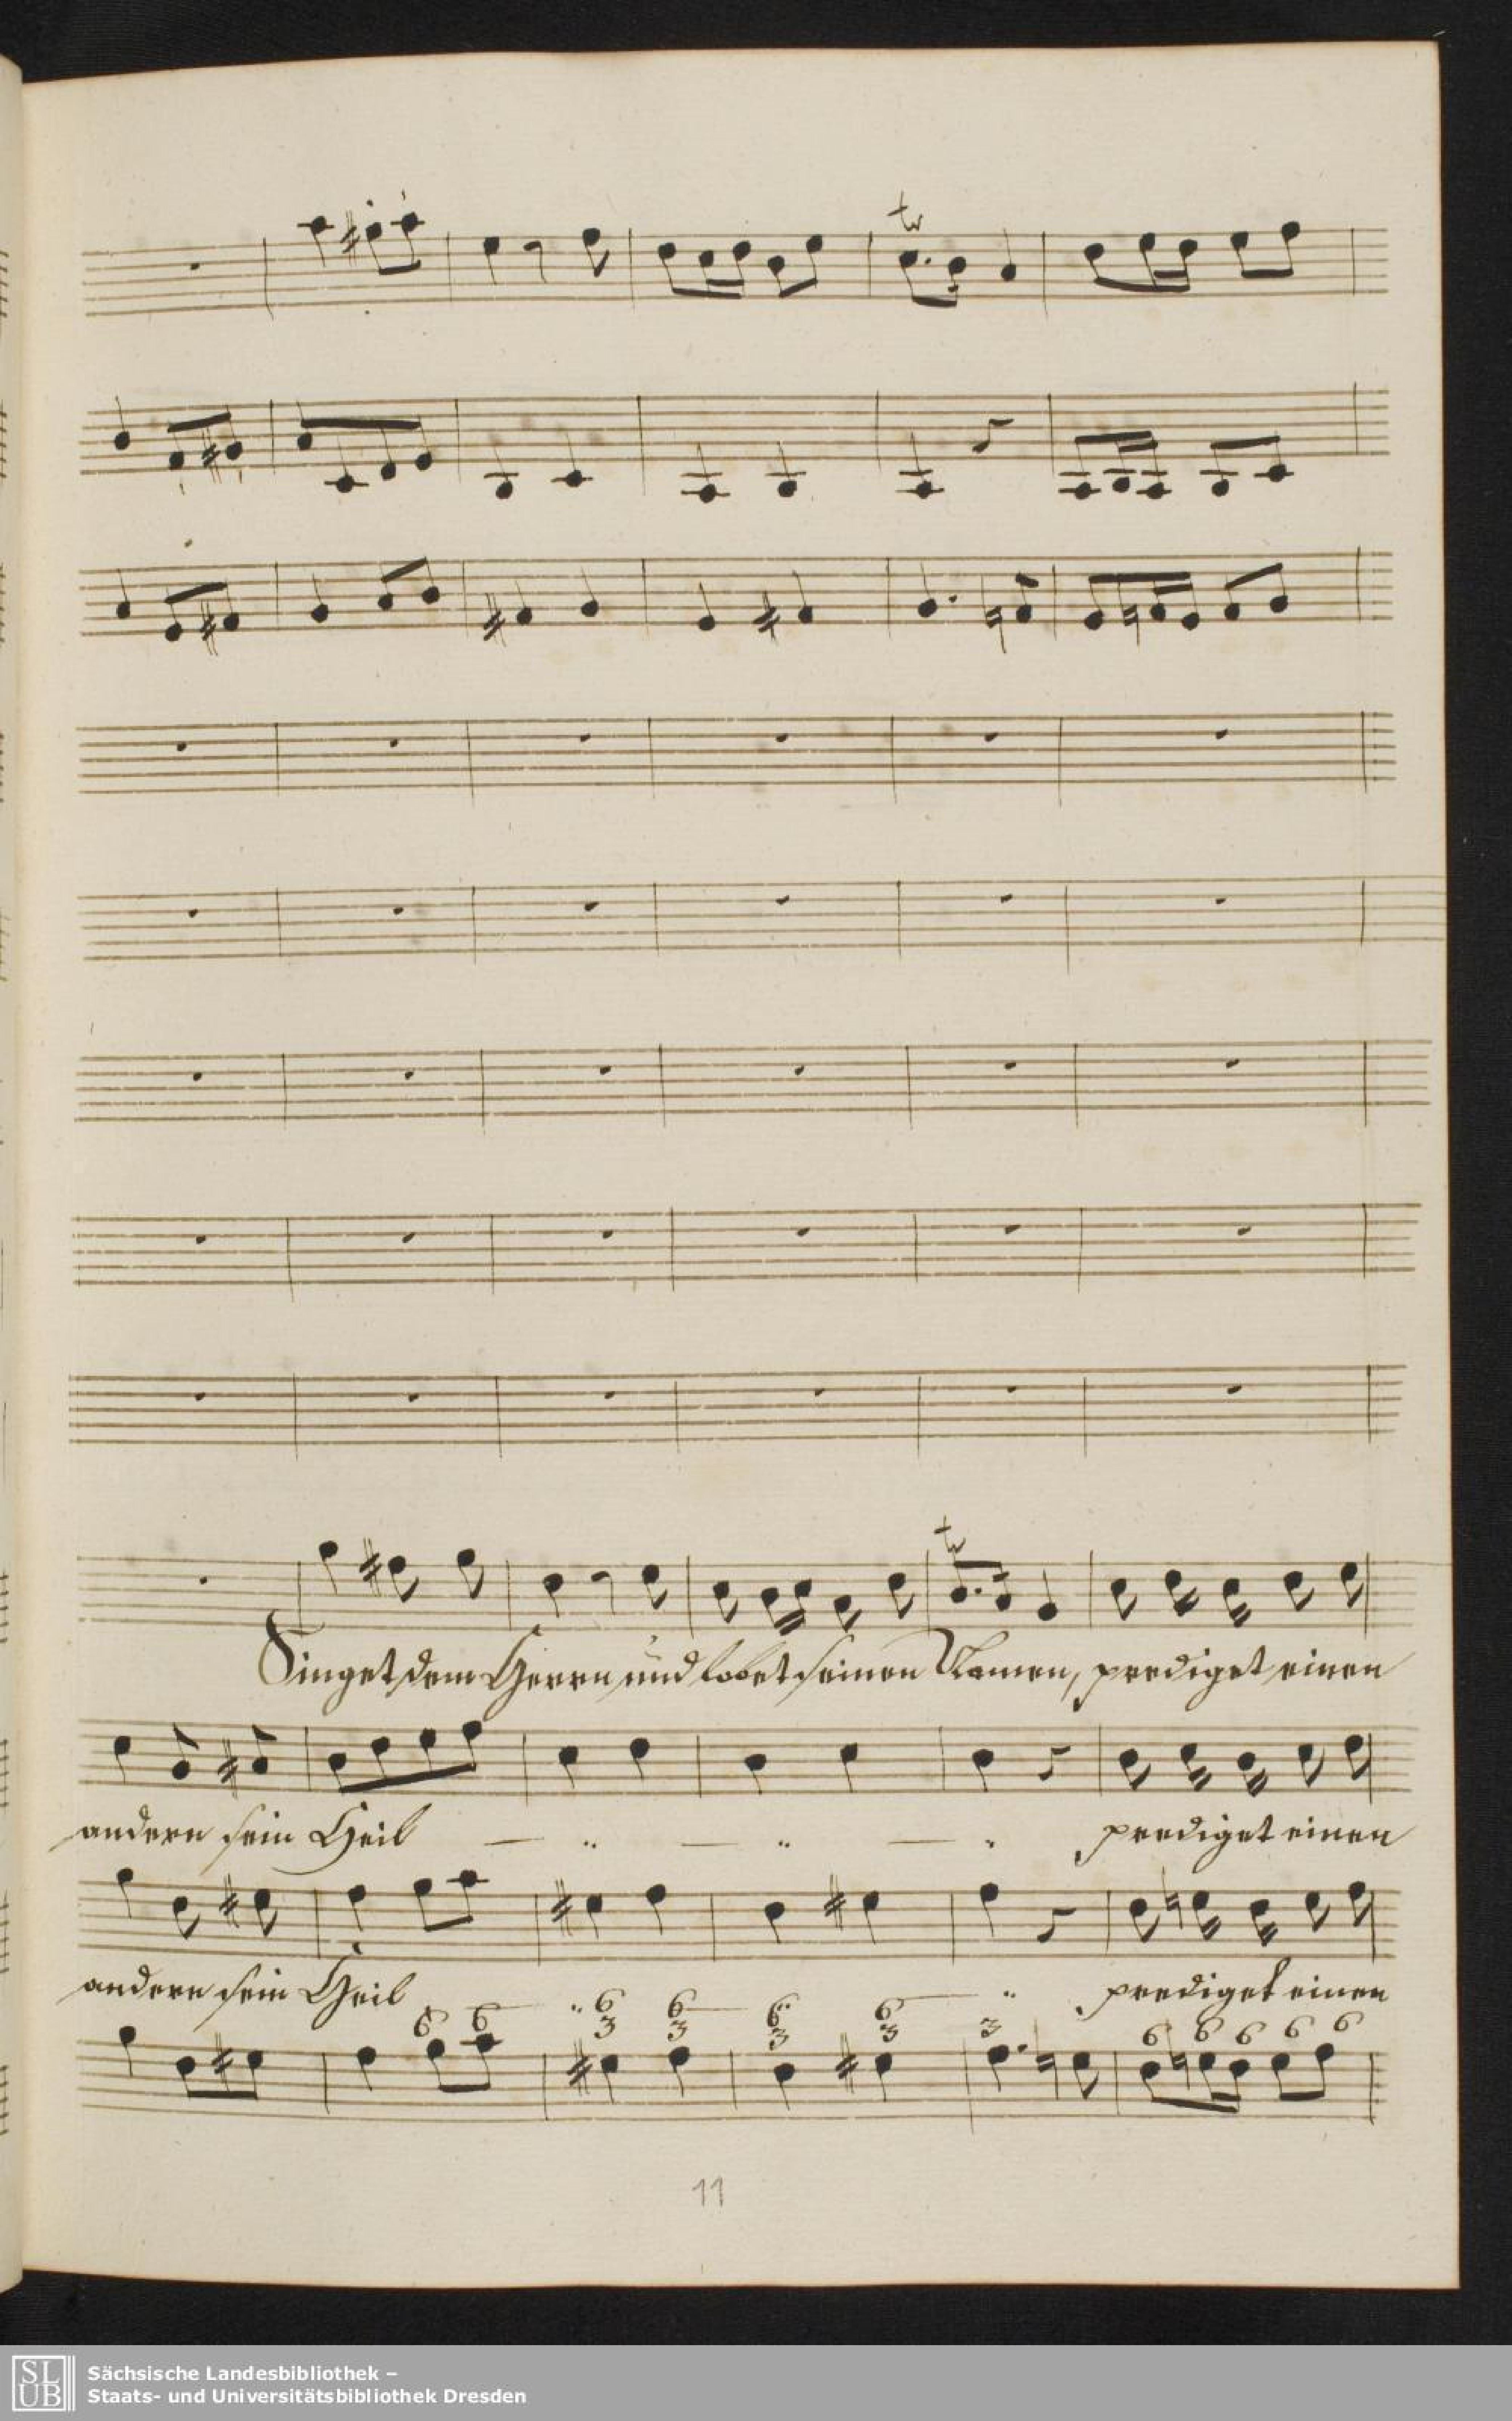 tr
tr
Singet dem Herrn und lobet seinen Namen, prediget einen
andern sein Heil — " — " — " prediget einen
andern sein Heil — " — " — " prediget einen
6 6 6 6 6 6 3 6 6 6 6 6
3 3 3 3
11
SLUB
Sächsische Landesbibliothek –
Staats- und Universitätsbibliothek Dresden